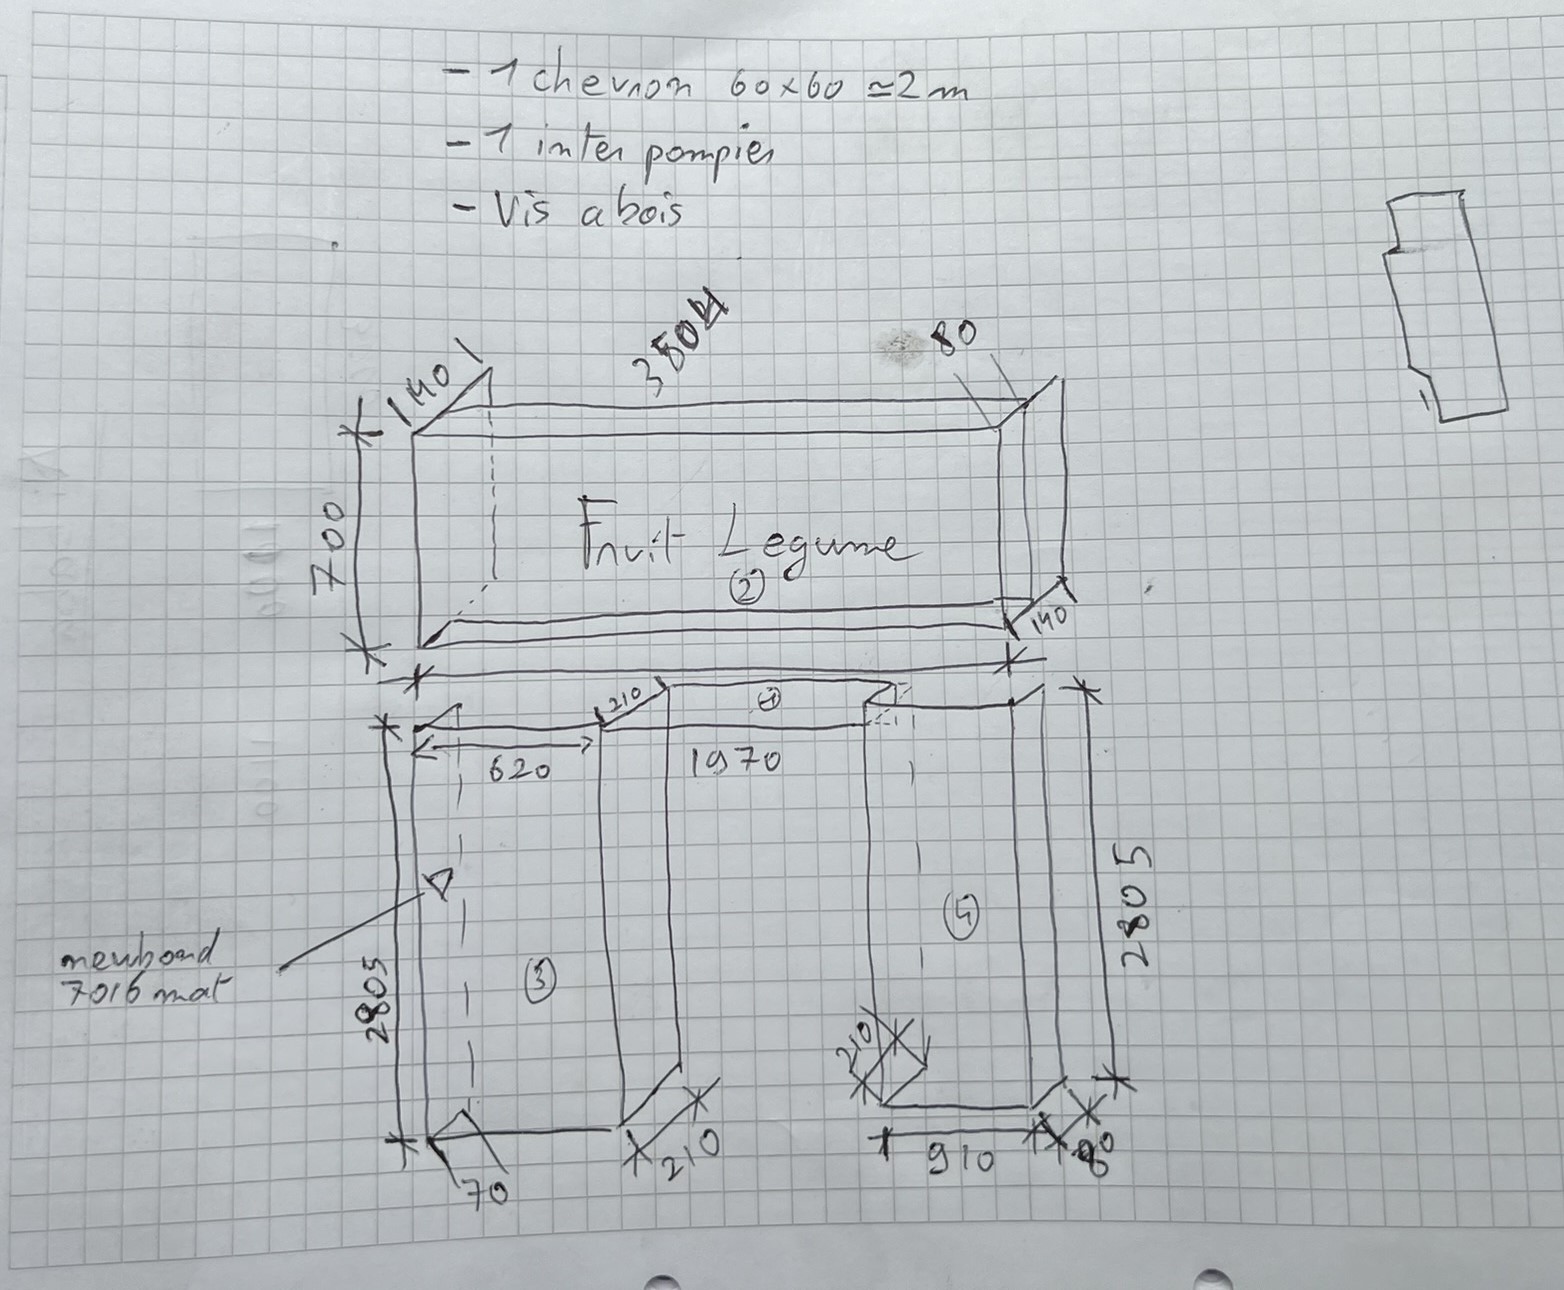 - 1 chevron 60x60 ≃2m
- 1 inter pompier
- Vis a bois
80
140
700
Fruit Legume
2
140
210
1
620
1970
2805
newbond
7016 mat
2805
3
4
210
70
210
910